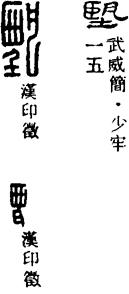 武威簡・少牢
一五
漢印徵
漢印徵